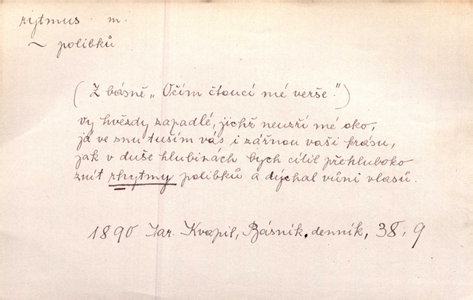 rytmus m.
~ polibků
(Z básně „Očím čtoucí mé verše“.)
vy hvězdy zapadlé, jichž neuzří mé oko,
já ve snu tuším vás i zářnou vaši krásu,
jak v duše hlubinách bych cítil přehluboko
znít rhytmy polibků a dýchal vůni vlasů.
1890 Jar. Kvapil, Básník. denník, 38, 9